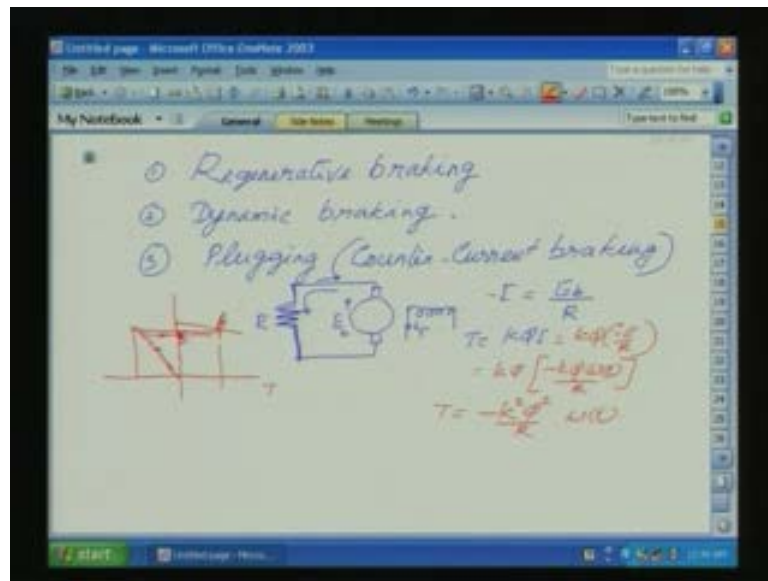 Untitled page - Microsoft Office OneNote 2003
File Edit View Insert Format Tools Window Help
Type a question for help
Back
My Notebook
General
Side Notes
Meetings
Type text to find
① Regenerative braking
② Dynamic braking.
③ Plugging (Counter-Current braking)
R
E_b
-I = E_b/R
T = KφI = Kφ(-E_b/R)
= Kφ[-Kφω/R]
T = -K²φ²/R ω
T
start
Untitled page - Micro...